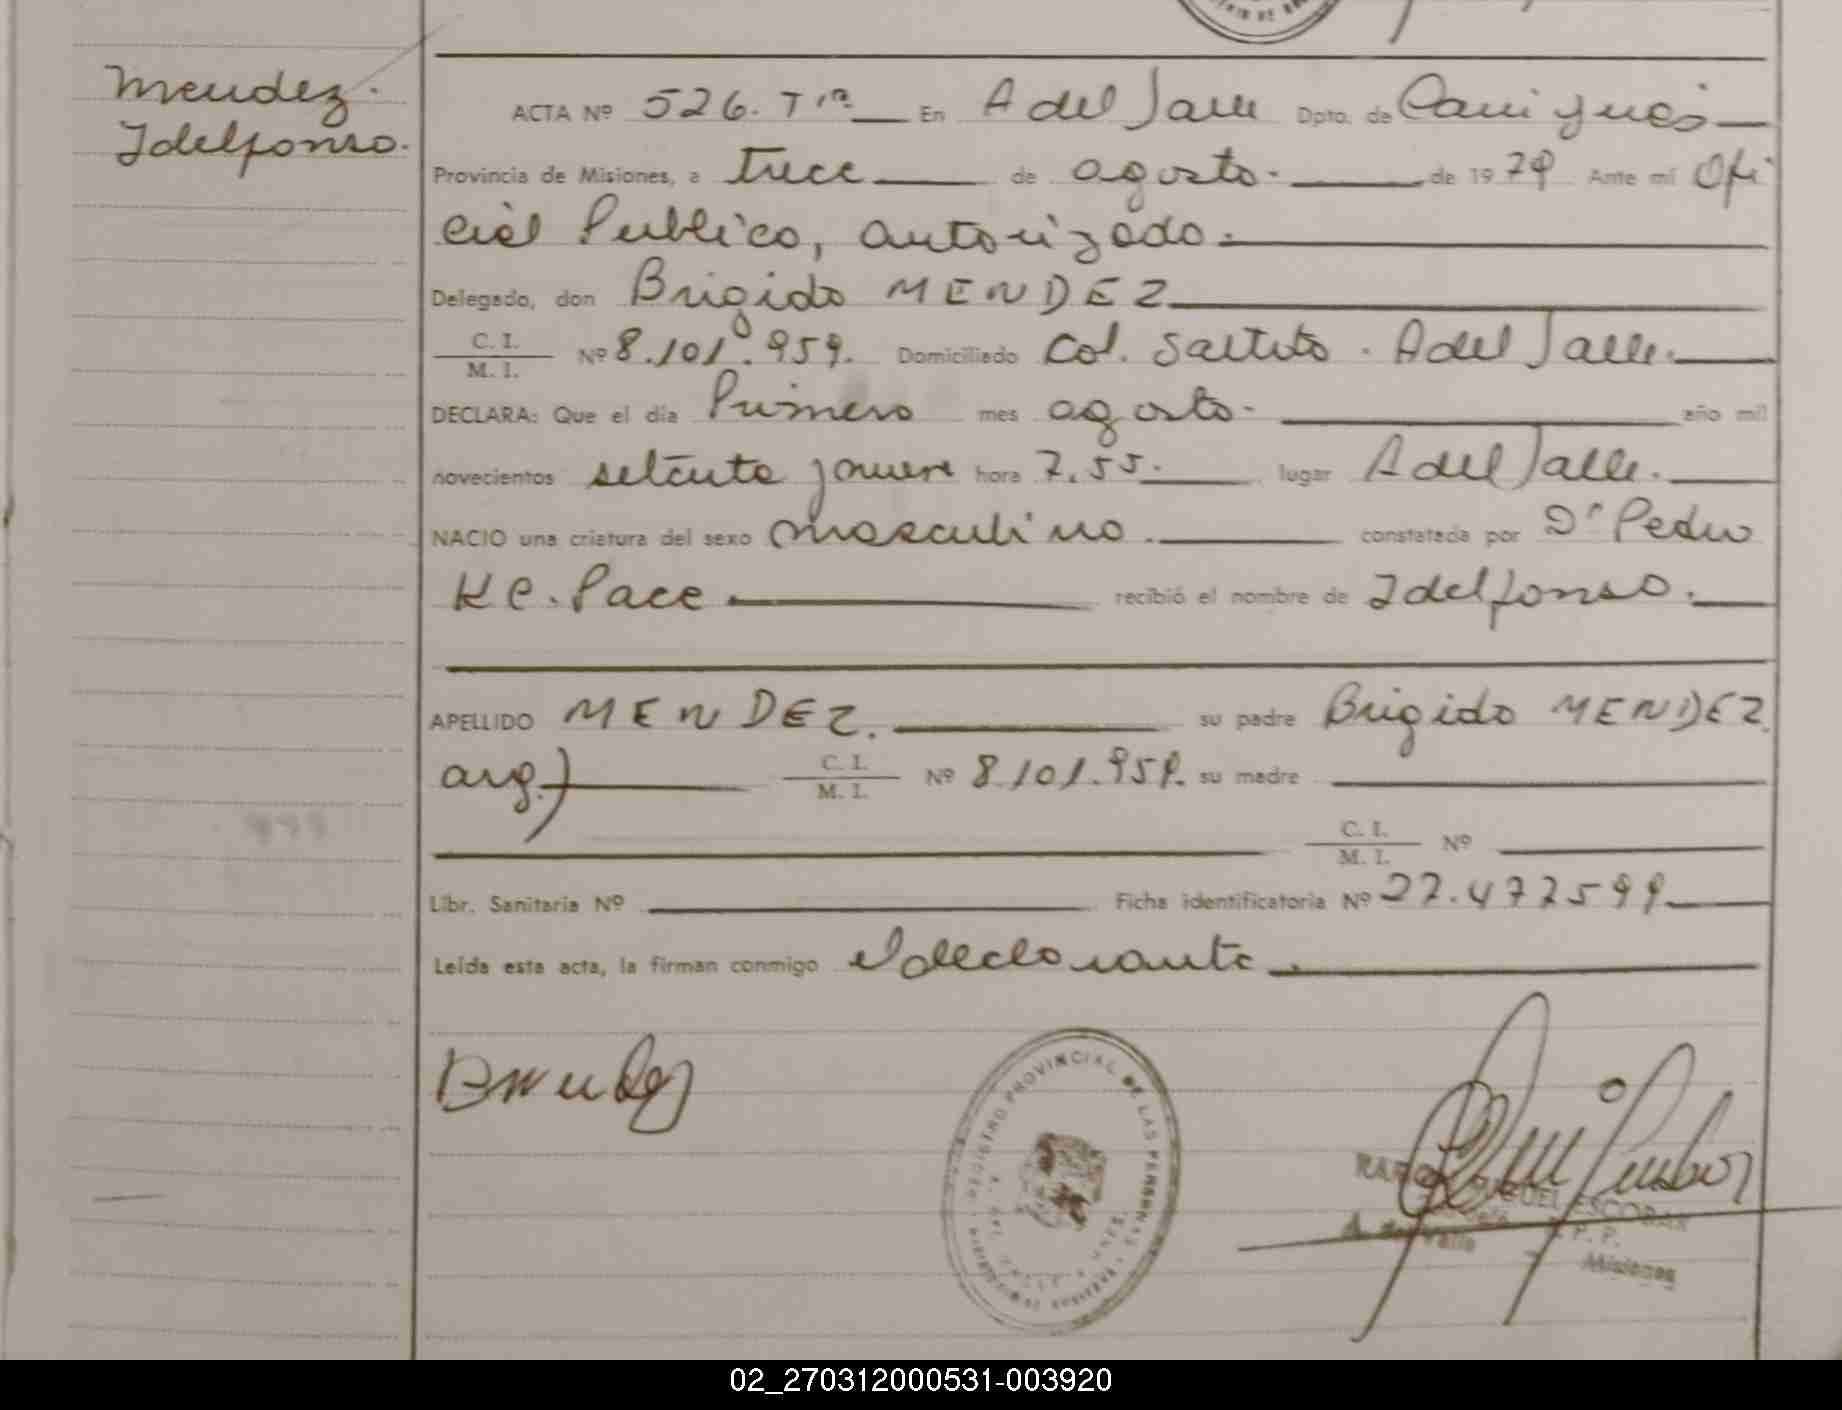 Mendez.
Idelfonso.
ACTA Nº 526. Tº1º En A del Valle Dpto. de Cainguás
Provincia de Misiones, a trece de agosto. de 1979 Ante mí Ofi
cial Publico, autorizado.
Delegado, don Brigido MENDEZ
C. I.
M. I. Nº 8.101.959. Domiciliado Col. Saltito. A del Valle.
DECLARA: Que el día Primero mes agosto. año mil
novecientos setenta y nueve hora 7.55. lugar A del Valle.
NACIO una criatura del sexo masculino. constatada por Dr Pedro
Pace recibió el nombre de Idelfonso.
APELLIDO MENDEZ. su padre Brigido MENDEZ
arg.) C. I.
M. I. Nº 8.101.959. su madre
C. I.
M. I. Nº
Libr. Sanitaria Nº Ficha identificatoria Nº 27.472599
Leída esta acta, la firman conmigo el declarante.
BMendez
REGISTRO PROVINCIAL DE LAS PERSONAS
MIGUEL ESCOBAR
A. del Valle
Misiones
02_270312000531-003920